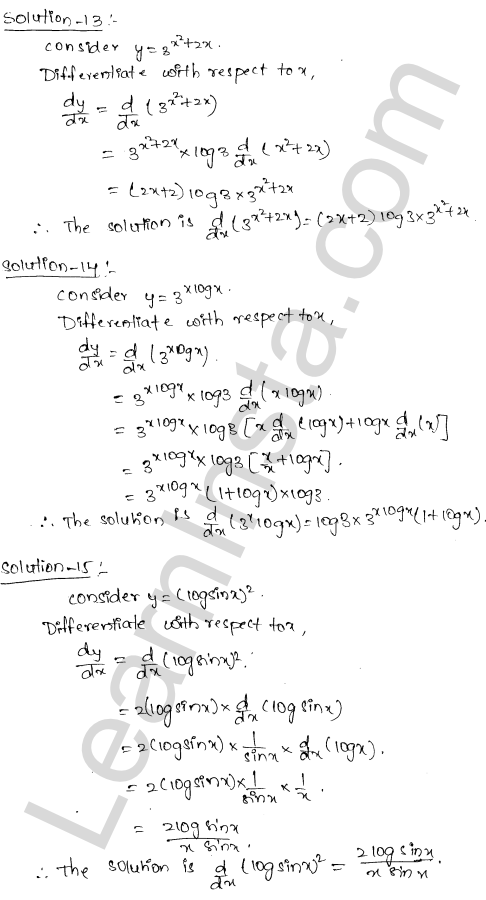 Solution-13:-
Consider y=3^{x²+2x}.
Differentiate with respect to x,
dy/dx = d/dx (3^{x²+2x})
= 3^{x²+2x} × log3 d/dx (x²+2x)
= (2x+2) log3 × 3^{x²+2x}
∴ The solution is d/dx (3^{x²+2x}) = (2x+2) log3 × 3^{x²+2x}
Solution-14:-
Consider y=3^{xlogx}.
Differentiate with respect to x,
dy/dx = d/dx (3^{xlogx}).
= 3^{xlogx} × log3 d/dx (xlogx).
= 3^{xlogx} × log3 [x d/dx (logx) + logx d/dx (x)]
= 3^{xlogx} × log3 [x/x + logx].
= 3^{xlogx} (1+logx) × log3.
∴ The solution is d/dx (3^{x}logx) = log3 × 3^{xlogx} (1+logx).
Solution-15:-
Consider y = (logsinx)².
Differentiate with respect to x,
dy/dx = d/dx (logsinx)².
= 2(logsinx) × d/dx (logsinx)
= 2(logsinx) × 1/sinx × d/dx (logx).
= 2(logsinx) × 1/sinx × 1/x.
= 2logsinx / x sinx.
∴ The solution is d/dx (logsinx)² = 2logsinx / x sinx.
LearnInsta.com